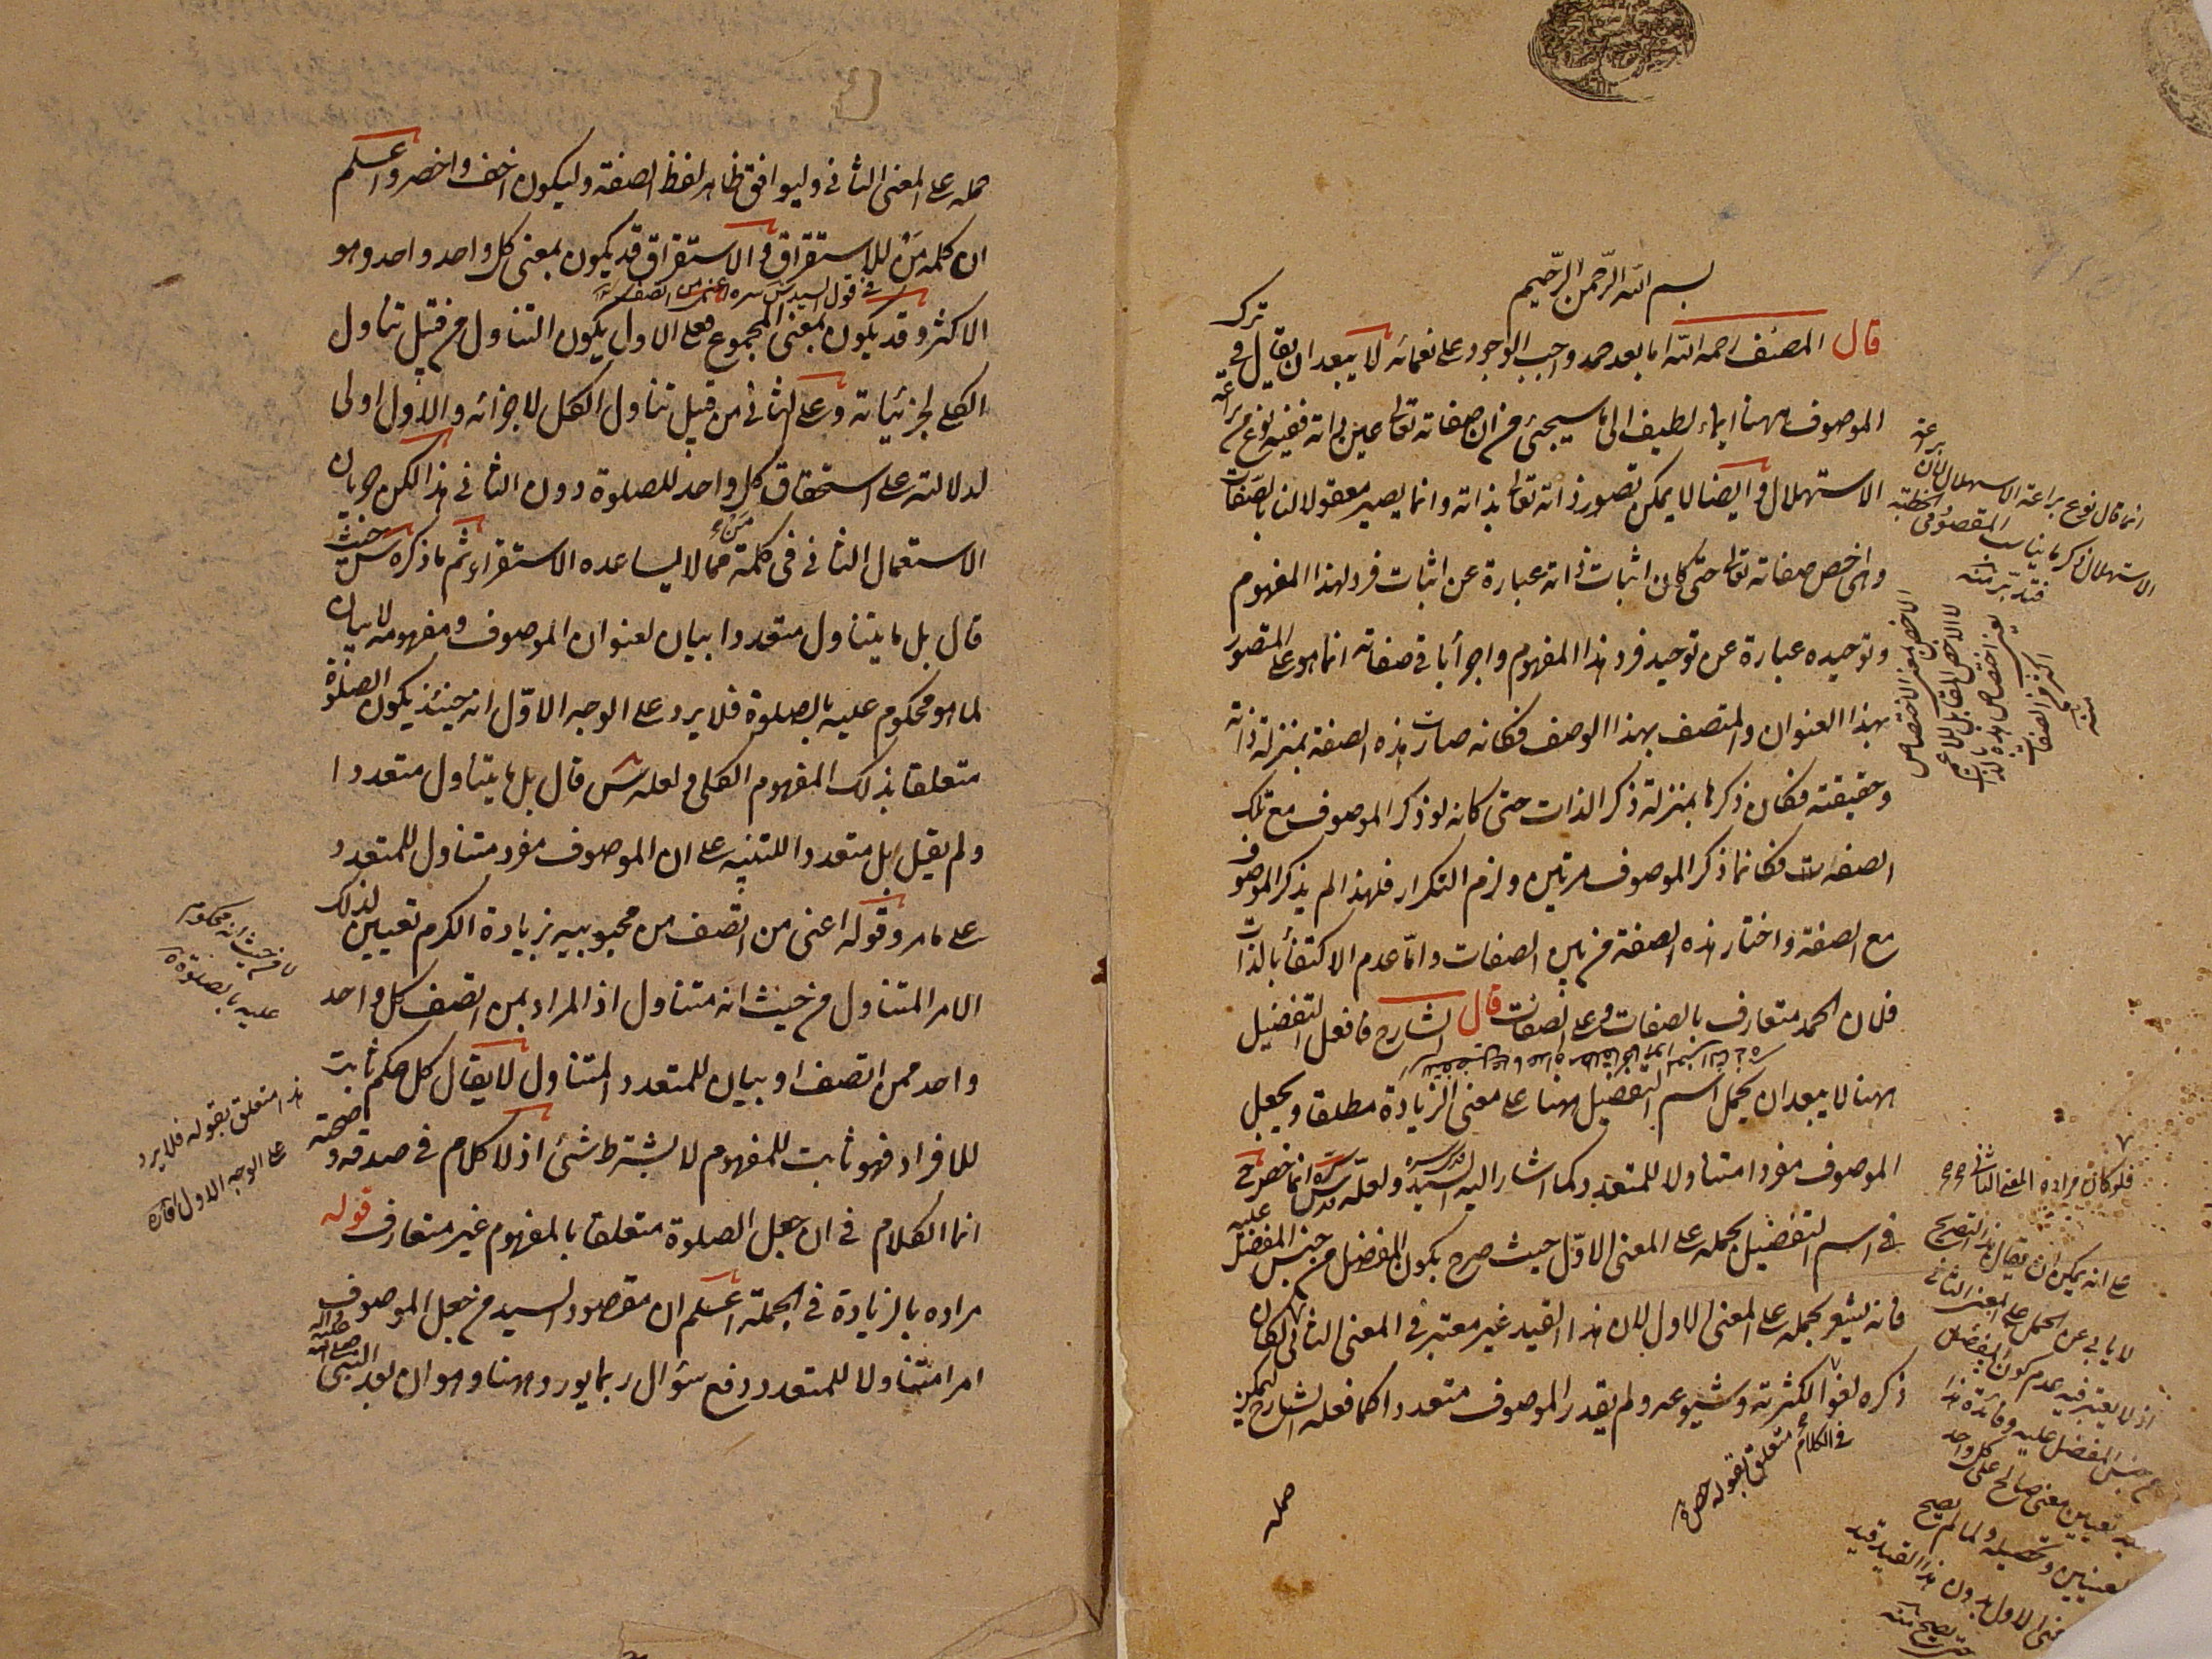 بسم الله الرحمن الرحيم
قال المصنف رحمه الله اما بعد حمد واجب الوجود على نعمائه لا يبعد ان يقال في ترك
الموصوف ههنا ايماء لطيف الى ما سيجيئ من ان صفاته تعالى عين ذاته ففيه نوع من براعة
الاستهلال و ايضا لا يمكن تصور ذاته تعالى بذاته وانما يصير معقولا لنا بالصفات
وهى اخص صفاته تعالى حتى كان اثبات ذاته عبارة عن اثبات فرد لهذا المفهوم
وتوحيده عبارة عن توحيد فرد هذا المفهوم واجراء باقى صفاته انما هو على المتصور
بهذا العنوان والمتصف بهذا الوصف فكانه صارت هذه الصفة بمنزلة ذاته
وحقيقته فكان ذكرها بمنزلة ذكر الذات حتى كانه لو ذكر الموصوف مع تلك
الصفات فكانما ذكر الموصوف مرتين ولزم التكرار فلهذا لم يذكر الموصوف
مع الصفة واختار هذه الصفة من بين الصفات واما عدم الاكتفاء بالذات
فلان الحمد متعارف بالصفات وعلى الصفات قال الشارح فافعل التفضيل
ههنا لا يبعد ان يحمل اسم التفضيل ههنا على معنى الزيادة مطلقا ويجعل
الموصوف مفردا متناولا للمتعدد كما اشار اليه السيد قدس سره ولعله قدس سره انما خص
فى اسم التفضيل بحمله على المعنى الاول حيث صرح بكون المفضل من جنس المفضل عليه
فانه يشعر بحمله على المعنى الاول لان هذا القيد غير معتبر فى المعنى الثانى لكان
ذكره لغوا لكثرته وشيوعه ولم يقدر الموصوف متعددا كما فعله الشارح ليمكن
حمله
انما قال نوع براعة الاستهلال لان براعة
الاستهلال ذكر ما يناسب المقصود فى الخطبة
فتدبر منه
الاخص بمعنى الاختصاص
لا الاخص المقابل للاعم
يعنى اختصاص هذه بالذات
اكثر من الصفات
منه
فلو كان مراده المعنى الثانى
على انه يمكن ان يقال هذا التصريح
لا يابى عن الحمل على المعنى الثانى
اذ لا يعتبر فيه عدم كون المفضل
من جنس المفضل عليه وفائدة هذا
تعيين معنى صالح على كل واحد
المعنيين وتحصيله ولما لم يصح
المعنى الاول بدون هذا القيد قيد
حتى يصح منه
فى الكلام متعلق بقوله خص
حمله على المعنى الثانى وليوافق ظاهر لفظ الصفة وليكون اخف واخصر واعلم
ان كلمة من للاستقراق والاستقراق قد يكون بمعنى كل واحد واحد وهو
فى قول السيد قدس سره اعنى من اتصف
الاكثر وقد يكون بمعنى المجموع فعلى الاول يكون التناول من قبيل تناول
الكلى لجزئياته وعلى الثانى من قبيل تناول الكل لاجزائه والاول اولى
لدلالته على استحقاق كل واحد للصلوة دون الثانى هذا لكن جريان
الاستعمال الثانى فى كلمة من مما لا يساعده الاستقراء ثم ما ذكره س حيث
قال بل ما يتناول متعددا بيان لعنوان الموصوف ومفهومه لا بيان
لما هو محكوم عليه بالصلوة فلا يرد على الوجه الاول انه حينئذ يكون الصلوة
متعلقا بذلك المفهوم الكلى ولعله س قال بل ما يتناول متعددا
ولم يقل بل متعددا للتنبيه على ان الموصوف مفرد متناول للمتعدد
على ما مر وقوله اعنى من اتصف من محبوبيه بزيادة الكرم تعيين لذلك
الامر المتناول من حيث انه متناول اذ المراد بمن اتصف كل واحد
واحد ممن اتصف او بيان للمتعدد المتناول لا يقال كل حكم ثابت
للافراد فهو ثابت للمفهوم لا بشترط شئ اذ لا كلام فى صدقه وصحته
انما الكلام فى ان جعل الصلوة متعلقا بالمفهوم غير متعارف قوله
مراده بالزيادة فى الجملة اعلم ان مقصود السيد من جعل الموصوف
امرا متناولا للمتعدد دفع سؤال ربما يورد ههنا وهو ان بعد النبى صلى الله عليه واله
لا من حيث انه محكوم
عليه بالصلوة
هذا متعلق بقوله فلا يرد
على الوجه الاول